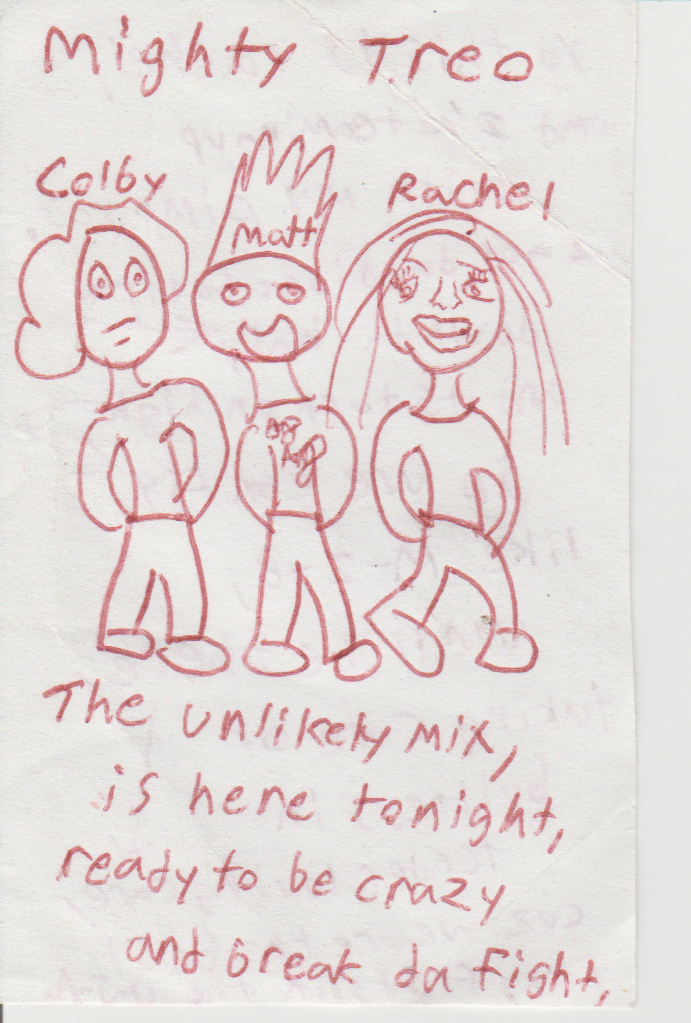 Mighty Treo
Colby
Matt
Rachel
The unlikely mix,
is here tonight,
ready to be crazy
and break da fight,